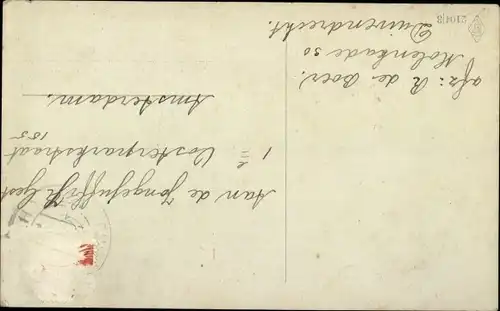 afz: R de Boer.
Molenkade 50
Duivendrecht.
21048
Aan de Jongejuffr
Oosterparkstraat
185
1
Amsterdam.